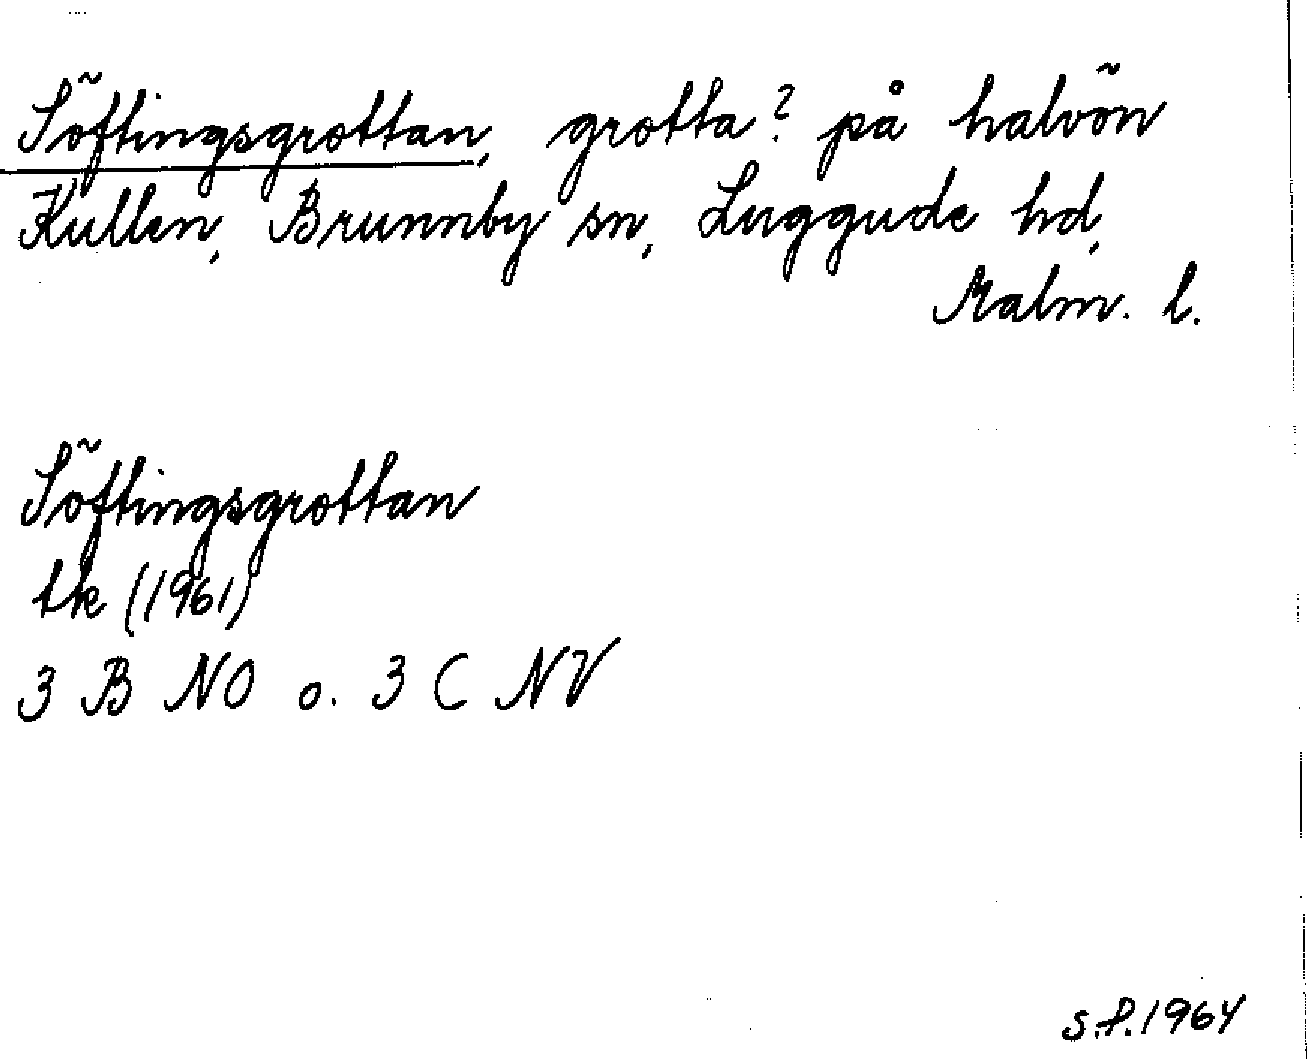 Söftingsgrottan, grotta? på halvön
Kullen, Brunnby sn, Luggude hd,
Malm. l.
Söftingsgrottan
tk (1961)
3 B NO o. 3 C NV
S.f. 1964